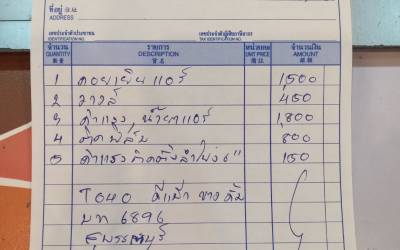 ที่อยู่
ADDRESS
เลขประจำตัวประชาชน
IDENTIFICATION NO.
เลขประจำตัวผู้เสียภาษีอากร
TAX IDENTIFICATION NO.
จำนวน รายการ หน่วยละ จำนวนเงิน
QUANTITY DESCRIPTION UNIT PRICE AMOUNT
1 คอยเย็น แอร์ 1,500
2 วาล์ว 450
3 ค่าแรง, น้ำยาแอร์ 1,800
4 ติดฟิล์ม 800
5 ค่าแรงติดตั้งลำโพง 6" 150
บท 6896
สุพรรณบุรี